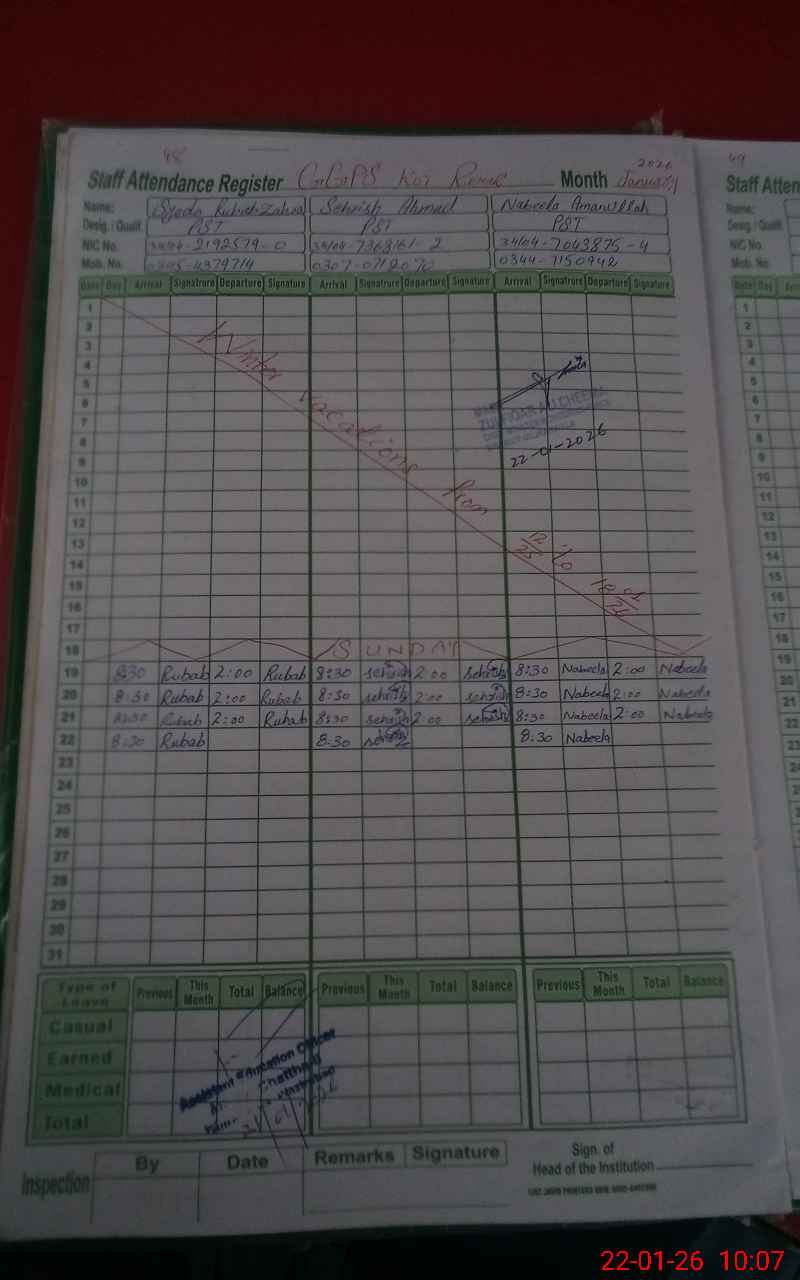 48
2026
Staff Attendance Register GGPS Kot Month January
Name: Syeda Rubab Zahra Sehrish Ahmad Nabeela Amanullah
Desig. / Qualif. PST PST PST
NIC No. 34104-2192579-0 34104-7368161-2 34104-7043875-4
Mob. No. 0307-0712070 0344-7150942
Date Day Arrival Signatrure Departure Signature Arrival Signatrure Departure Signature Arrival Signatrure Departure Signature
1
2
3
4
5
6
7
8
9
10
11
12
13
14
15
16
17
Winter vacations from 12/25 to 18 01/26
ZULFIQAR ALI CHEEMA
22-01-2026
18 SUNDAY
19 8:30 Rubab 2:00 Rubab 8:30 sehrish 2:00 sehrish 8:30 Nabeela 2:00 Nabeela
20 8:30 Rubab 2:00 Rubab 8:30 sehrish 2:00 sehrish 8:30 Nabeela 2:00 Nabeela
21 8:30 Rubab 2:00 Rubab 8:30 sehrish 2:00 sehrish 8:30 Nabeela 2:00 Nabeela
22 8:30 Rubab 8:30 sehrish 8:30 Nabeela
23
24
25
26
27
28
29
30
31
Type of Leave Previous This Month Total Balance Previous This Month Total Balance Previous This Month Total Balance
Casual
Earned
Medical
Total
Assistant Education Officer
Inspection By Date Remarks Signature
Sign. of
Head of the Institution
49
Staff Atten
Name:
Desig. / Qualif.
NIC No.
Mob. No.
Date Day
1
2
3
4
5
6
7
8
9
10
11
12
13
14
15
16
17
18
19
20
21
22
23
22-01-26 10:07